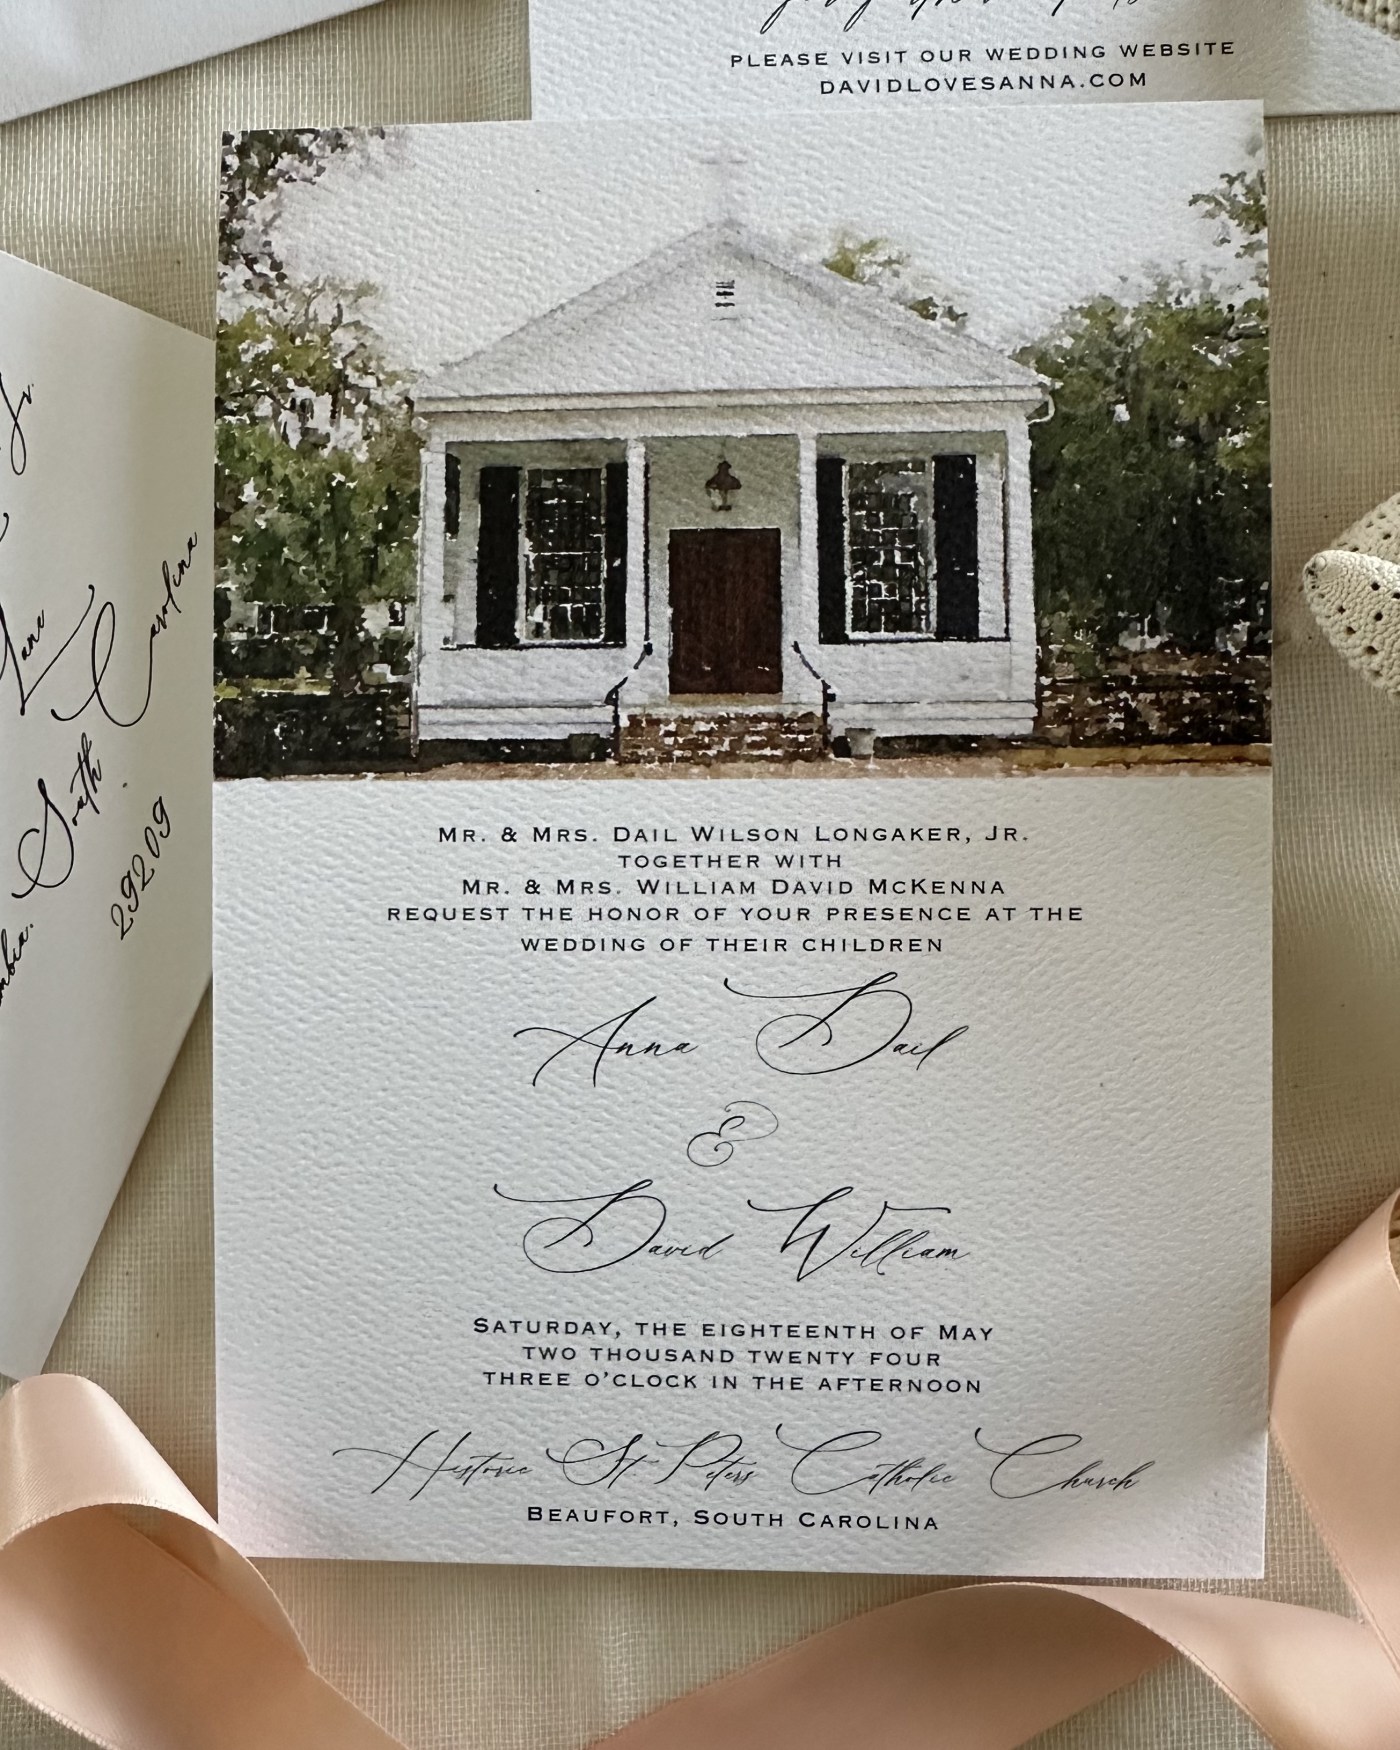 PLEASE VISIT OUR WEDDING WEBSITE
DAVIDLOVESANNA.COM
Jr.
Lane
South Carolina
29209
Mr. & Mrs. Dail Wilson Longaker, Jr.
together with
Mr. & Mrs. William David McKenna
request the honor of your presence at the
wedding of their children
Anna Dail
&
David William
Saturday, the eighteenth of May
two thousand twenty four
three o'clock in the afternoon
Historic St. Peters Catholic Church
Beaufort, South Carolina